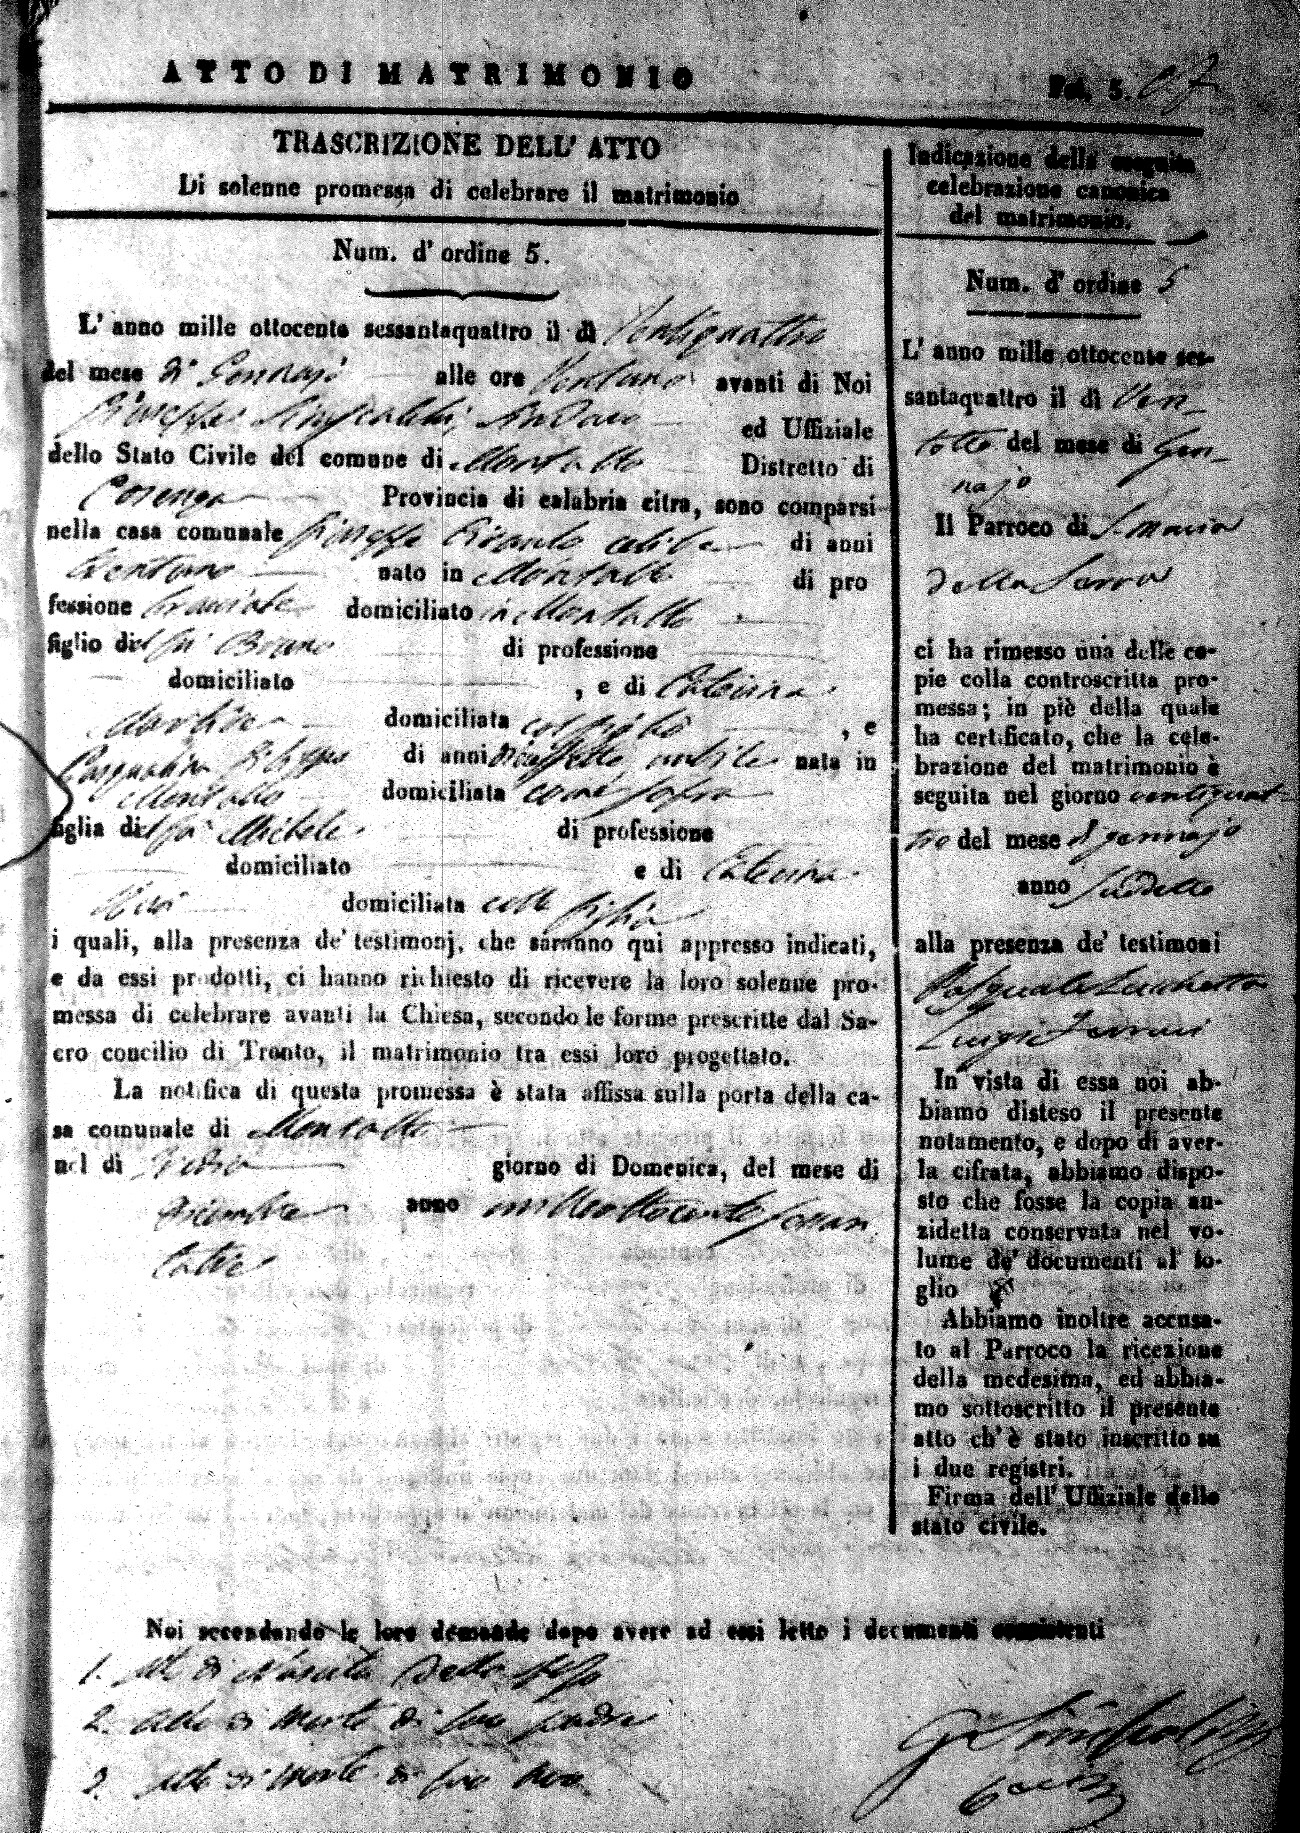 ATTO DI MATRIMONIO
Fol. 5.
TRASCRIZIONE DELL' ATTO
Di solenne promessa di celebrare il matrimonio
Num. d' ordine 5.
L' anno mille ottocento sessantaquattro il dì Ventiquattro
del mese di Gennajo alle ore Ventuno avanti di Noi
Giuseppe Sindaco ed Uffiziale
dello Stato Civile del comune di Montalto Distretto di
Cosenza Provincia di calabria citra, sono comparsi
nella casa comunale Giuseppe celibe di anni
Trentuno nato in Montalto di pro
fessione domiciliato in Montalto
figlio del fu Bruno di professione
domiciliato , e di Caterina
domiciliata col figlio , e
Pasqualina di anni diciassette nubile nata in
Montalto domiciliata come sopra
figlia del fu Michele di professione
domiciliato e di Caterina
domiciliata colla figlia
i quali, alla presenza de' testimonj, che saranno qui appresso indicati,
e da essi prodotti, ci hanno richiesto di ricevere la loro solenne pro-
messa di celebrare avanti la Chiesa, secondo le forme prescritte dal Sa-
cro concilio di Trento, il matrimonio tra essi loro progettato.
La notifica di questa promessa è stata affissa sulla porta della ca-
sa comunale di Montalto
nel di giorno di Domenica, del mese di
Dicembre anno milleottocentosessan
tatre
Noi secondando le loro demande dopo avere ad essi letto i documenti consistenti
1. Atto di Nascita dello sposo
2. Atto di morte di suo padre
3. Atto di morte di suo avo
Indicazione della seguita
celebrazione canonica
del matrimonio.
Num. d' ordine 5
L' anno mille ottocento ses-
santaquattro il dì Ven-
totto del mese di Gen-
najo
Il Parroco di S. Maria
della Serra
ci ha rimesso una delle co-
pie colla controscritta pro-
messa; in piè della quale
ha certificato, che la cele-
brazione del matrimonio è
seguita nel giorno ventiquat-
tro del mese di gennajo
anno suddetto
alla presenza de' testimoni
Pasquale Lucchetta
Luigi
In vista di essa noi ab-
biamo disteso il presente
notamento, e dopo di aver-
la cifrata, abbiamo dispo-
sto che fosse la copia an-
zidetta conservata nel vo-
lume de' documenti al fo-
glio
Abbiamo inoltre accusa-
to al Parroco la ricezione
della medesima, ed abbia-
mo sottoscritto il presente
atto ch' è stato inscritto su
i due registri.
Firma dell' Uffiziale dello
stato civile.